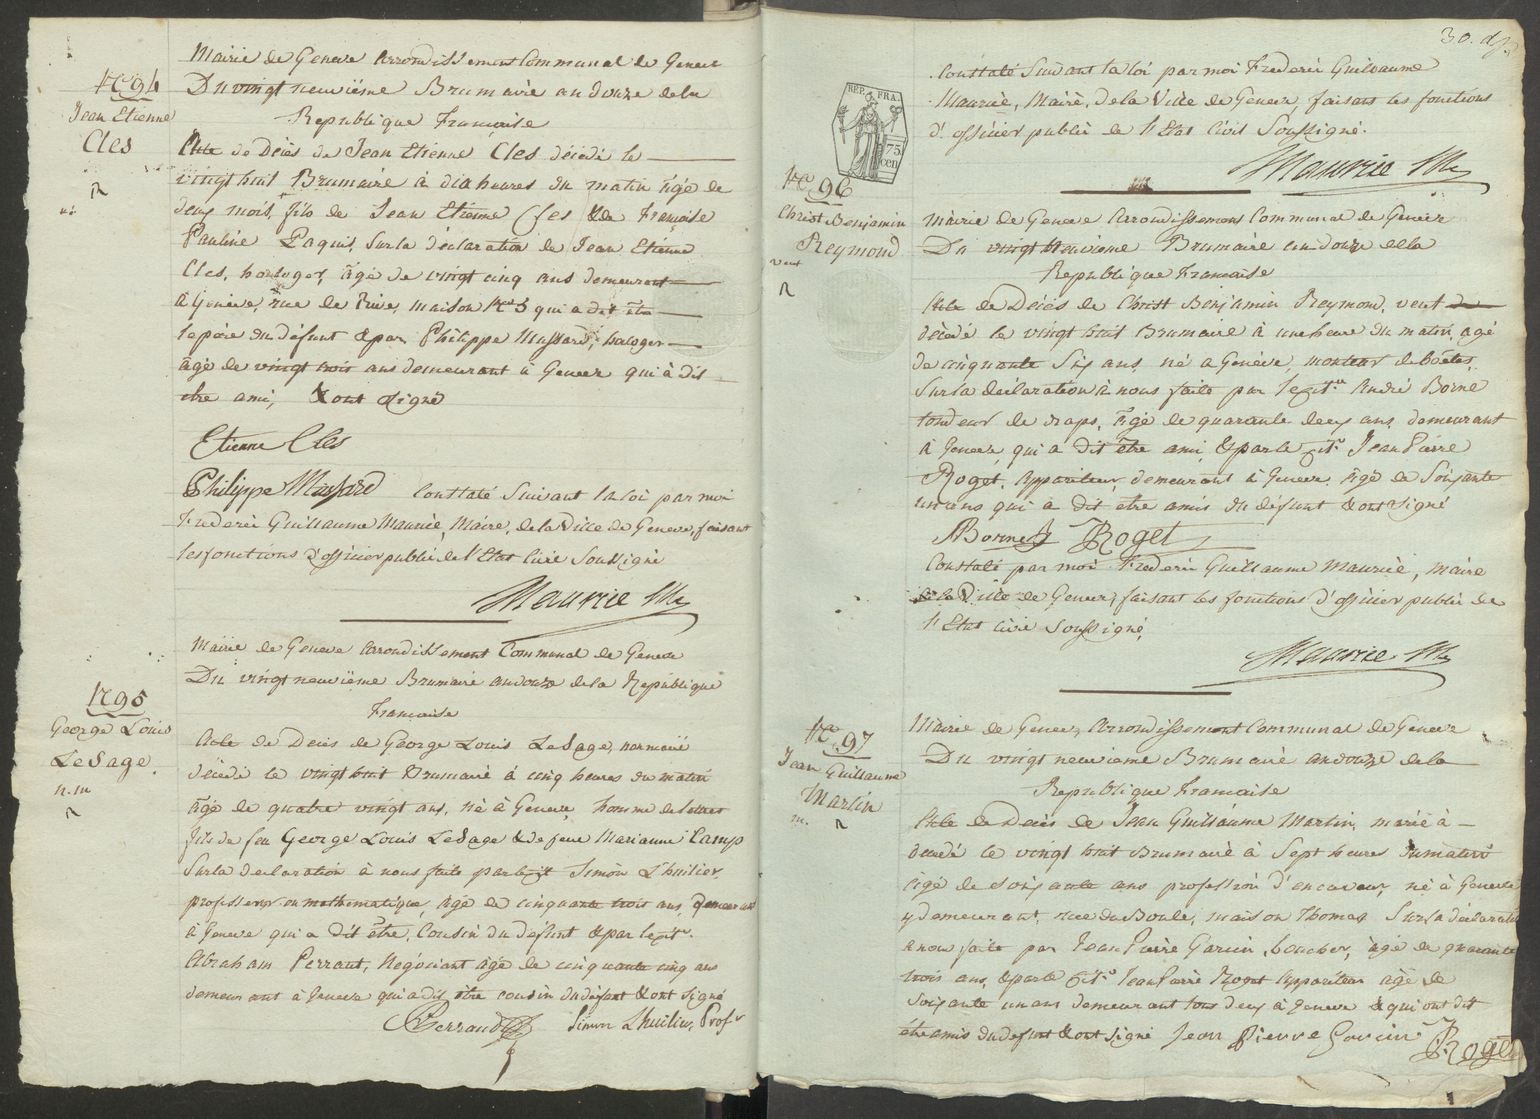 N.o 94
Jean Etienne
Cles
Mairie de Geneve Arrondissement Communal de Geneve
Du vingt neuvième Brumaire an douze de la
Republique Francaise
Acte de Décès de Jean Etienne Cles décédé le
vingt huit Brumaire à dix heures du matin âgé de
deux mois, fils de Jean Etienne Cles & de Françoise
Pauline Paquis, Sur la déclaration de Jean Etienne
Cles, horloger, âgé de vingt cinq ans demeurant
à Genève, rue de Rive, maison N.o 5 qui a dit être
le père du défunt & par Philippe Mussard, horloger
âgé de vingt trois ans demeurant à Geneve qui à dit
etre ami, & ont signé
Etienne Cles
Philippe Mussard Constaté Suivant la loi par moi
Frederic Guillaume Maurice, Maire, de la Ville de Geneve, faisant
les fonctions d'officier public de l'Etat Civil Soussigné
Maurice M
N.o 95
George Louis
LeSage.
n. m
Mairie de Geneve Arrondissement Communal de Geneve
Du vingt neuvième Brumaire an douze de la Republique
Francaise
Acte de Décès de George Louis LeSage, non marié
décédé le vingt huit Brumaire à cinq heures du matin
âgé de quatre vingt ans, né à Geneve, homme de lettres
fils de feu George Louis LeSage & de feue Marianne Camp
Sur la declaration à nous faite par le cit. Simon L'huilier,
professeur en mathematique, âgé de cinquante trois ans, demeurant
à Geneve qui a dit être, Cousin du défunt & par le cit.
Abraham Perraut, Negociant âgé de cinquante cinq ans
demeurant à Geneve qui a dit être cousin du défunt & ont signé
Perraud Simon Lhuilier, Prof.r
30.
REP. FRA.
75
cen
Constaté Suivant la loi par moi Frederic Guillaume
Maurice, Maire, de la Ville de Geneve, faisant les fonctions
d'officier public de l'Etat Civil Soussigné.
Maurice M
N.o 96
Christ Benjamin
Reymond
veuf
Mairie de Geneve Arrondissement Communal de Genève
Du vingt neuvieme Brumaire an douze de la
Republique Francaise
Acte de Décès de Christ Benjamin Reymond, veuf de
décédé le vingt huit Brumaire à une heure du matin, agé
de cinquante Six ans, né a Genève, monteur de boëtes,
Sur la déclaration à nous faite par le cit.en André Borne
tondeur de draps, âgé de quarante deux ans, demeurant
à Geneve, qui a dit être ami & par le cit. Jean Pierre
Roget, Appariteur, demeurant à Geneve, âgé de Soixante
un ans qui a dit etre amis du défunt & ont signé
A Borne Roget
Constaté par moi Frederic Guillaume Maurice, Maire
de la Ville de Geneve, faisant les fonctions d'officier public de
l'Etat civil Soussigné,
Maurice M
N.o 97
Jean Guillaume
Martin
m.
Mairie de Geneve, Arrondissement Communal de Geneve
Du vingt neuvieme Brumaire an douze de la
Republique Francaise
Acte de Décès de Jean Guillaume Martin, marié à
décédé le vingt huit Brumaire à Sept heures du matin
âgé de soixante ans profession d'encaveur, né à Geneve
y demeurant, rue du Boule, maison Thomas Sur la déclaration
à nous faite par Jean Pierre Garcin, boucher, âgé de quarante
trois ans, & par le cit. Jean Pierre Roget Appariteur âgé de
Soixante un ans demeurant tous deux à Geneve & qui ont dit
être amis du defunt & ont signé Jean Pierre Garcin Roget